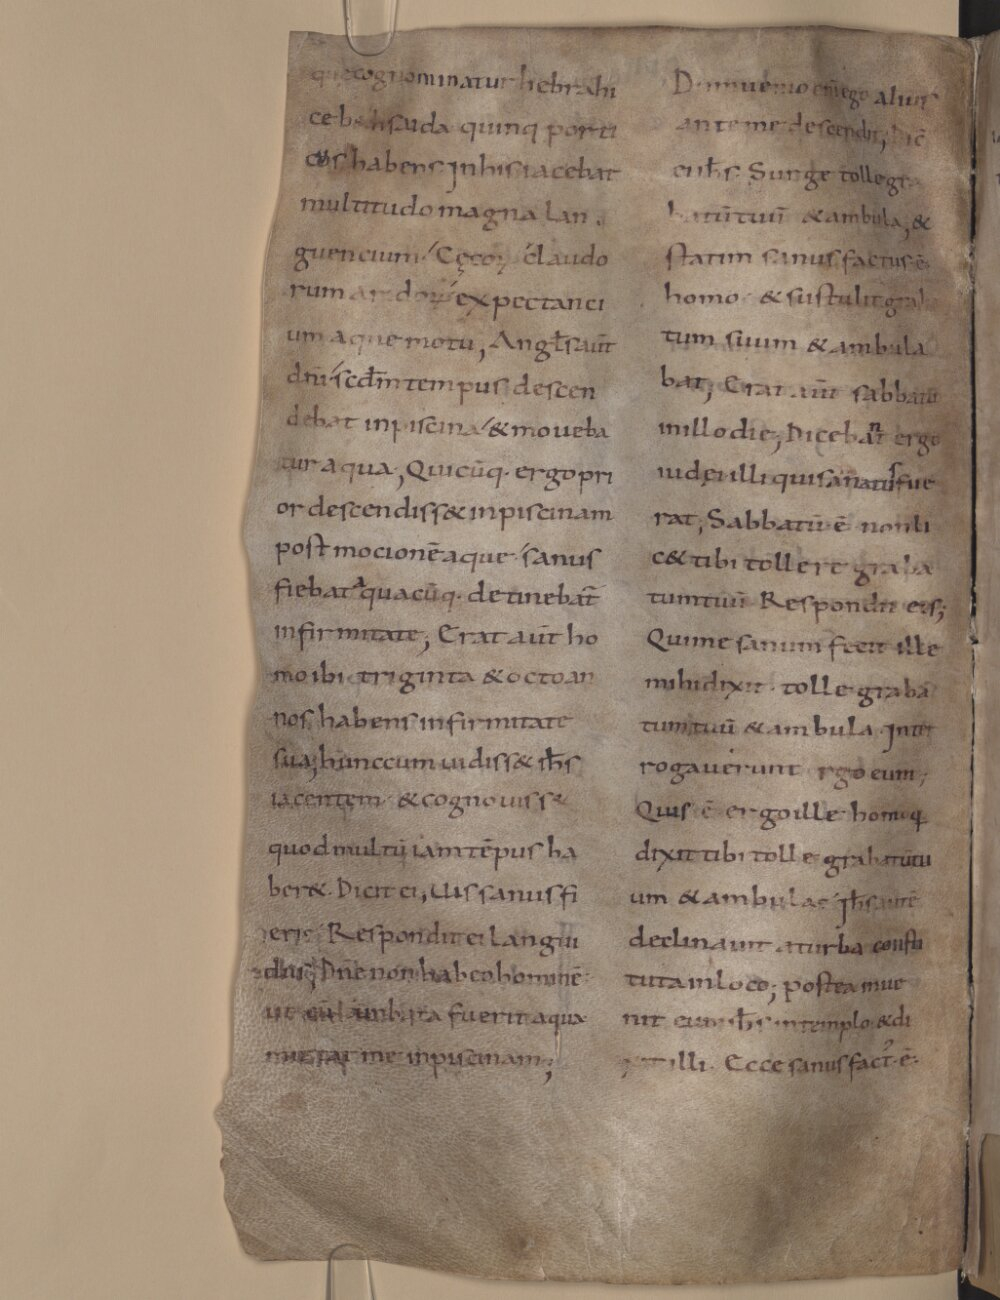 que cognominatur hebrahi
ce bethsaida quinq porti
cos habens Jnhis iacebat
multitudo magna lan
guencium Cęcoꝝ claudo
rum aridoꝝ expectanci
um aque motū, Angls aūt
dnī scdm tempus descen
debat inpiscina & moueba
tur aqua, Quicūq. ergo pri
or descendiss& inpiscinam
post mocionē aque sanus
fiebat aquacūq. detinebat̄
infirmitate, Erat aūt ho
mo ibi triginta & octo an
nos habens infirmitate
sua, hunc cum uidiss& ih̄s
iacentem & cognouiss&
quod multū iam tēpus ha
ber& Dicit ei, Uis sanus fi
eri Respondit ei langui
dus, Dn̄e non habeo hominē
ut cū turbata fuerit aqua
mittat me inpiscinam;
Dum uenio enī ego alius
ante me descendit, Dic̄
ei ih̄s Surge tolle gra
batū tuū & ambula, &
statim sanus factus ē
homo & sustulit grab
tum suum & ambula
bat, Erat aūt sabbatū
inillo die, Dicebant ergo
iudęi illi qui sanatus fue
rat, Sabbatū ē non li
c& tibi tollere graba
tum tuū Respondit eis;
Qui me sanum fecit ille
mihi dixit tolle graba
tum tuū & ambula Inter
rogauerunt ergo eum,
Quis ē ergo ille homo q
dixit tibi tolle grabatū tu
um & ambula Jh̄s autē
declinauit a turba consti
tuta inloco, postea inue
nit eum ih̄s intemplo & di
xit illi. Ecce sanus fact' ē.